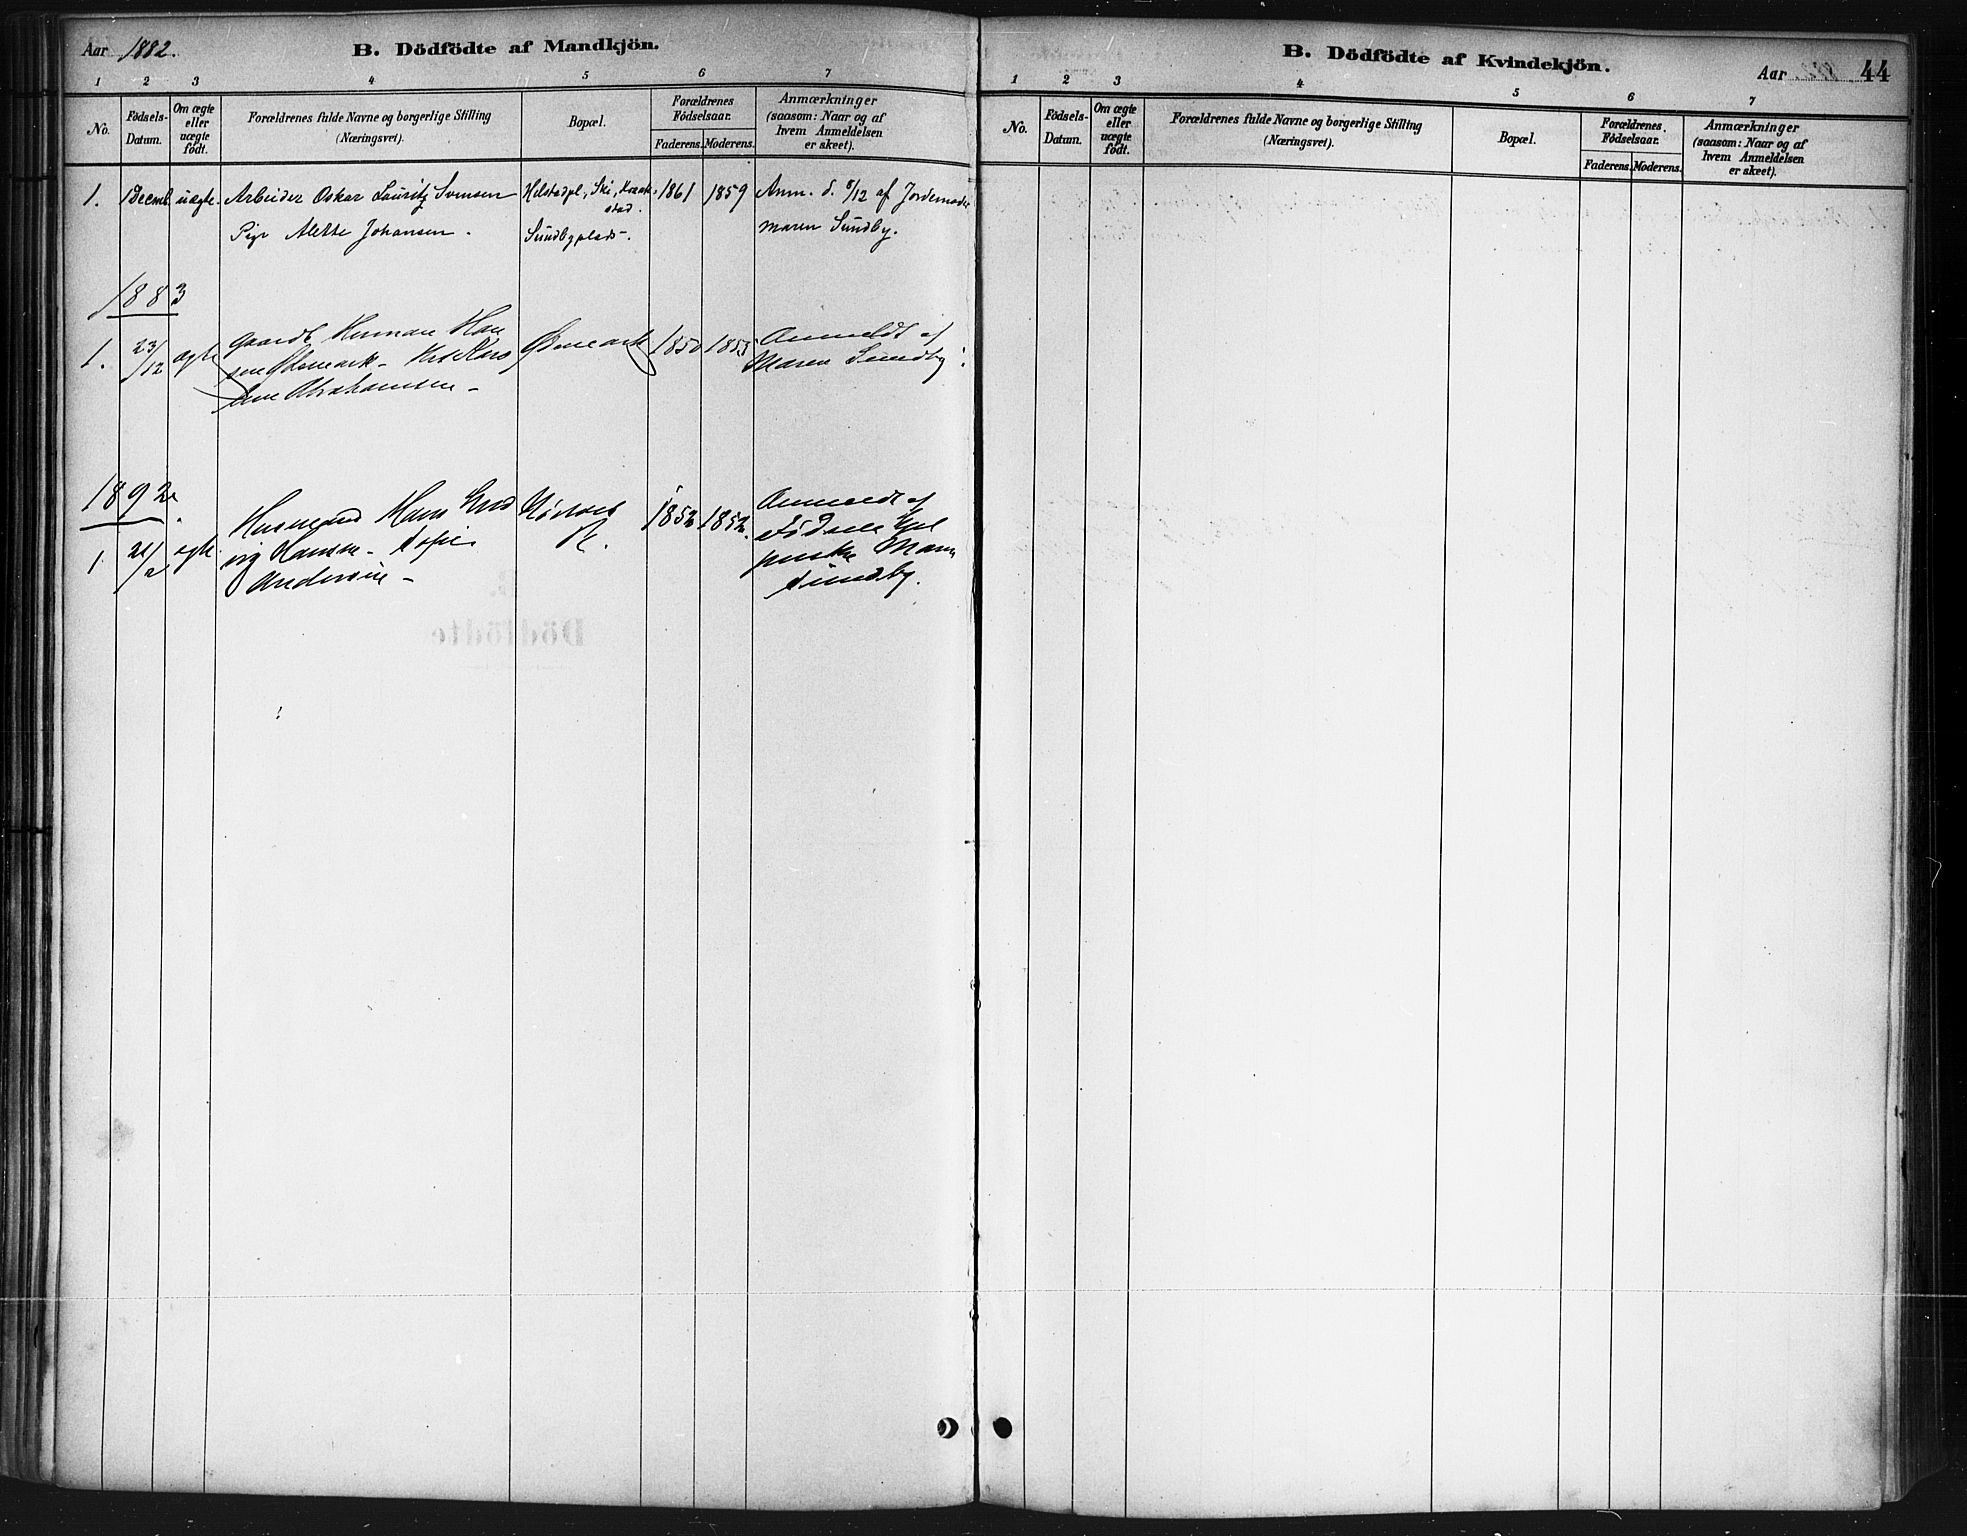 Aar 1882.
B. Dödfödte af Mandkjön.
1 2 3 4 5 6 7
No.
Födsels-
Datum.
Om ægte
eller
uægte
födt.
Forældrenes fulde Navne og borgerlige Stilling
(Næringsvei).
Bopæl.
Forældrenes
Födselsaar.
Faderens. Moderens.
Anmærkninger
(saasom: Naar og af
hvem Anmeldelsen
er skeet).
1. 1 Decmb. uægte. Arbeider Oskar Lauritz Svensen Helstadpl., Ski, Kraak- 1861 1859 Anm. d. 8/12 af Jordemoder
stad.
Pige Alette Johansen. Sundbyplads. Maren Sundby.
1883
1. 23/12 ægte Gaardb. Herman Han
sen Ødemark Ødemark 1850 1855 Anmeldt af
Maren Sundby.
Abrahamsen
1892.
1. ægte Hans
Hansen Sofie
Andersen
1852 1852. Anmeldt af
Maren
Sundby.
B. Dödfödte af Kvindekjön.
Aar 44
1 2 3 4 5 6 7
No.
Födsels-
Datum.
Om ægte
eller
uægte
födt.
Forældrenes fulde Navne og borgerlige Stilling
(Næringsvei).
Bopæl.
Forældrenes
Födselsaar.
Faderens. Moderens.
Anmærkninger
(saasom: Naar og af
hvem Anmeldelsen
er skeet).